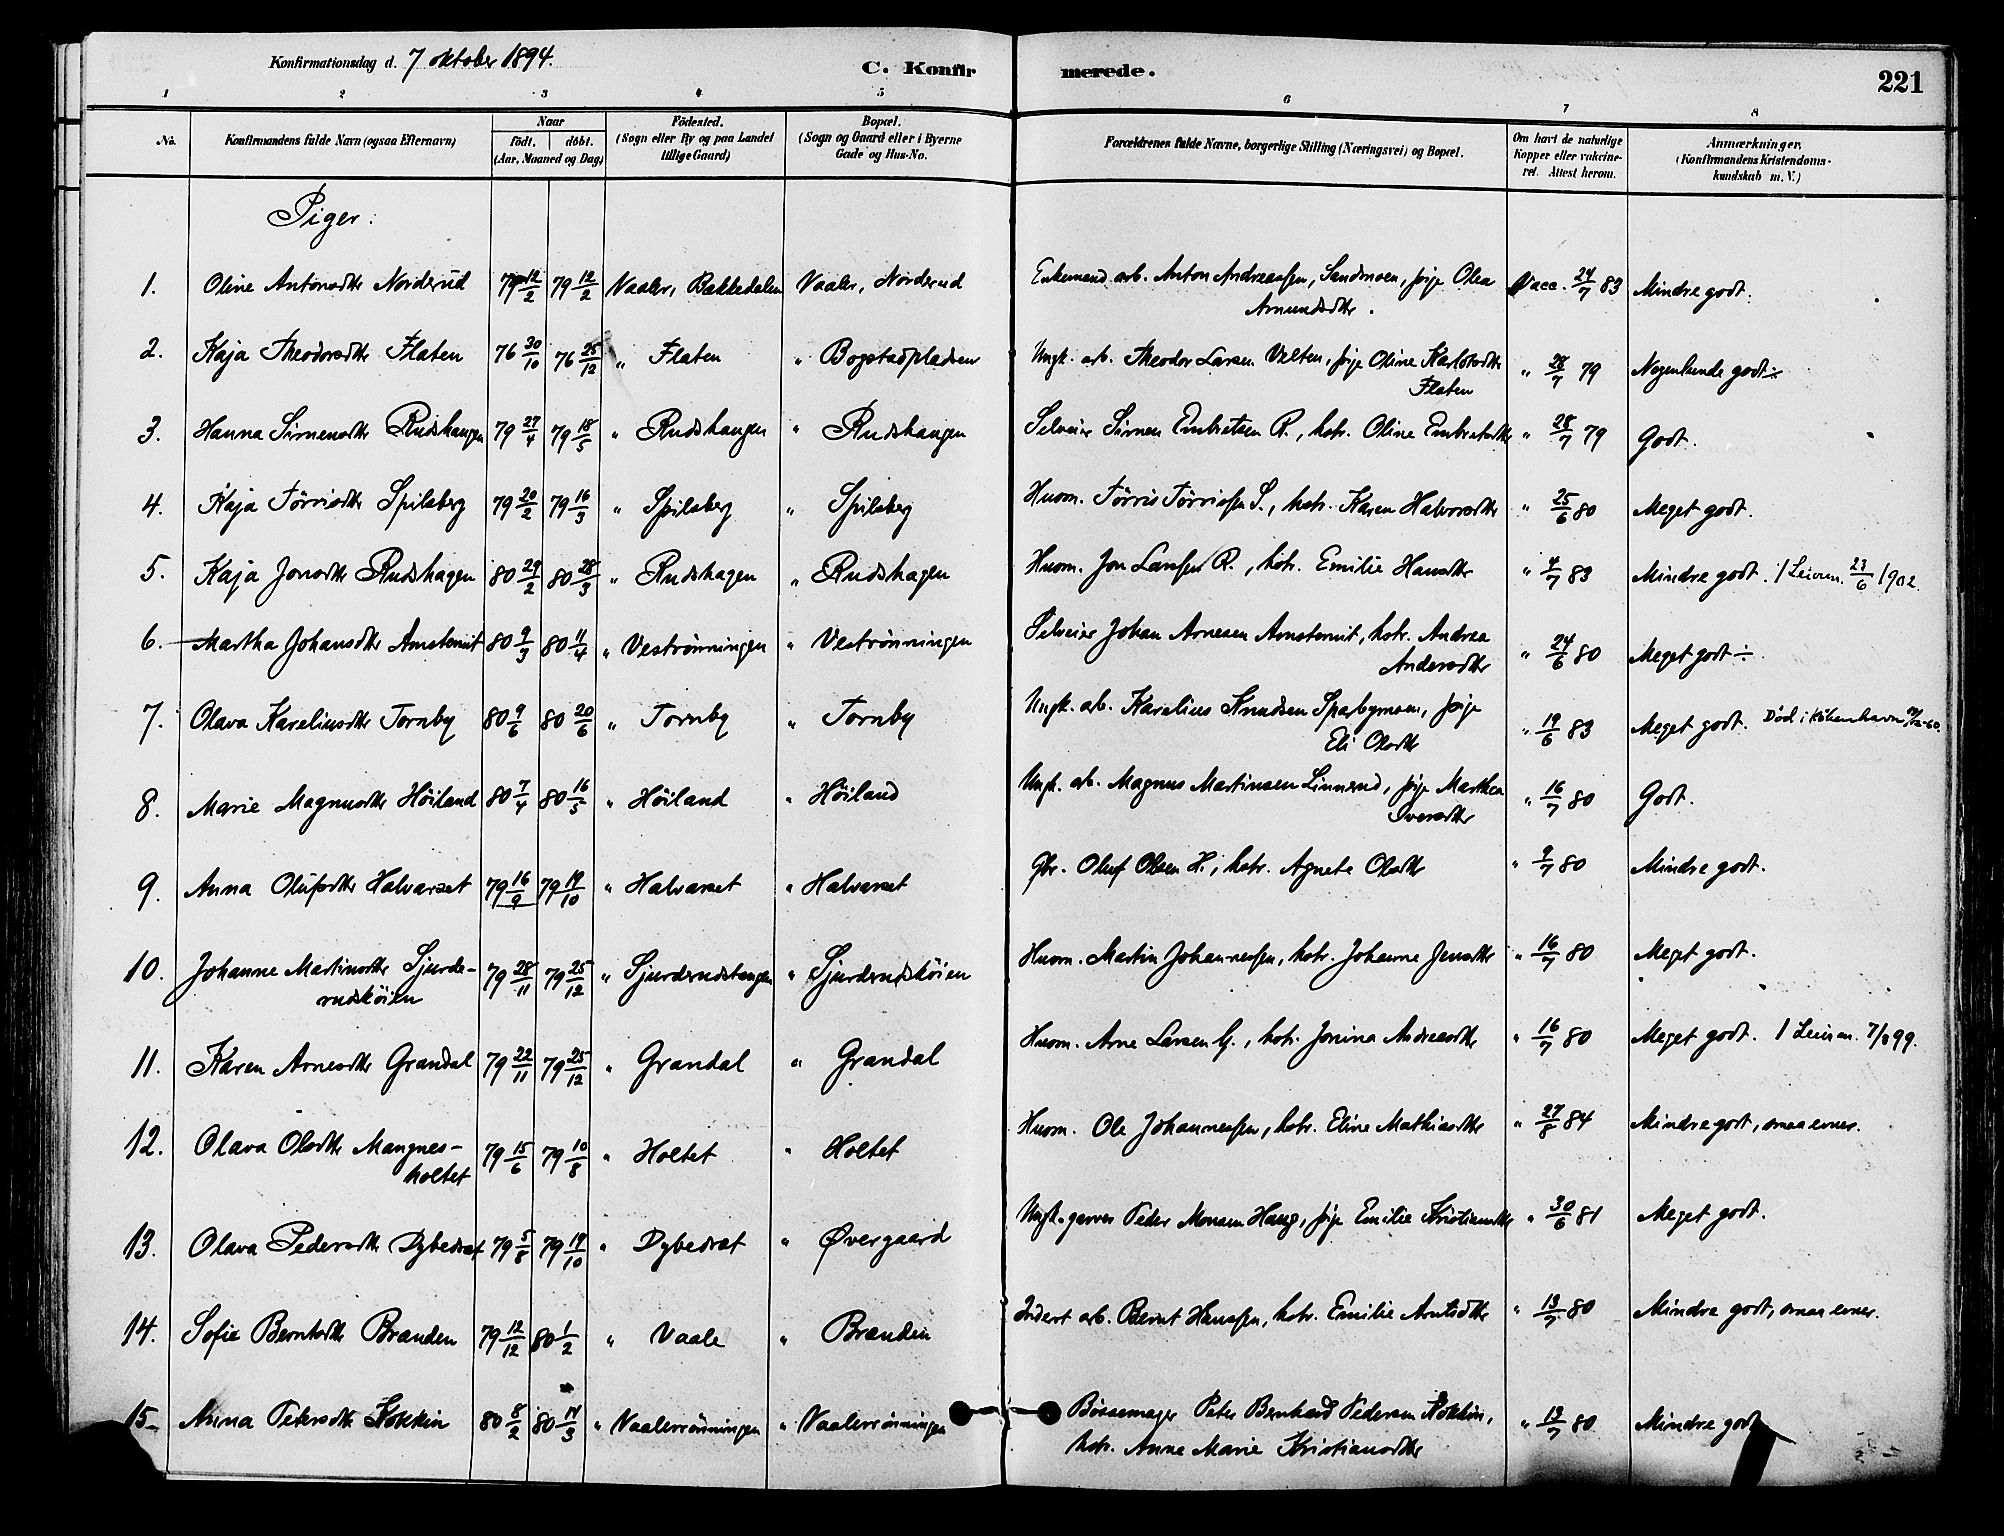 Konfirmationsdag d. 7 oktober 1894.
C. Konfirmerede.
221
1 2 3 4 5 6 7 8
No.
Konfirmandens fulde Navn (ogsaa Efternavn)
Naar
født. døbt.
(Aar, Maaned og Dag)
Fødested.
(Sogn eller By og paa Landet
tillige Gaard)
Bopæl.
(Sogn og Gaard eller i Byerne
Gade og Hus-No.
Forældrenes fulde Navne, borgerlige Stilling (Næringsvei) og Bopæl.
Om havt de naturlige
Kopper eller vakcine-
ret. Attest herom.
Anmærkninger.
(Konfirmandens Kristendoms-
kundskab m. V.)
Piger:
1. Oline Antonsdtr Norderud 79 12/2 79 12/2 Vaaler, Bakkedalen Vaaler, Norderud Enkemand arb. Anton Andreassen, Sandmoen, pige Olea Vacc. 24/7 83 Mindre godt.
Amundsdtr.
2. Kaja Theodorsdtr Flaten 76 30/10 76 25/12 " Flaten " Bogstadpladsen Ungk. arb. Theodor Larsen Velten, pige Oline Karlsdtr " 28/7 79 Nogenlunde godt ÷
Flaten
3. Hanna Simensdtr Rudshaugen 79 27/4 79 18/5 " Rudshaugen " Rudshaugen Selveier Simen Embretsen R., hstr. Oline Embretsdtr " 28/7 79 Godt.
4. Kaja Tørrisdtr Spilsberg 79 20/2 79 16/3 " Spilsberg " Spilsberg Husm. Tørris Tørrissen S., hstr. Karen Halvorsdtr " 25/6 80 Meget godt.
5. Kaja Jonsdtr Rudshagen 80 29/2 80 28/3 " Rudshagen " Rudshagen Husm. Jon Larsen R., hstr. Emilie Hansdtr " 4/7 83 Mindre godt. / Leierm. 23/6 1902.
6. Martha Johansdtr Arnstemit 80 9/3 80 11/4 " Vestrønningen " Vestrønningen Selveier Johan Arnesen Arnstemit, hstr. Andrea " 24/6 80 Meget godt ÷
Andersdtr
7. Olava Kareliusdtr Tornby 80 9/6 80 20/6 " Tornby " Tornby Ungk. arb. Karelius Knudsen Sparbymoen, pige " 19/6 83 Meget godt. Død i København
Eli Olsdtr
8. Marie Magnusdtr Høiland 80 7/4 80 16/5 " Høiland " Høiland Ungk. arb. Magnus Martinsen Linnerud, pige Marthea " 16/7 80 Godt.
Iversdtr
9. Anna Olufsdtr Halvarset 79 16/9 79 19/10 " Halvarset " Halvarset Gbr. Oluf Olsen H., hstr. Agnete Olsdtr " 9/7 80 Mindre godt.
10. Johanne Martinsdtr Sjurde- 79 28/11 79 25/12 " Sjurderudstangen " Sjurderudskøien Husm. Martin Johannessen, hstr. Johanne Jensdtr " 16/7 80 Meget godt.
rudskøien
11. Karen Arnesdtr Grandal 79 22/11 79 25/12 " Grandal " Grandal Husm. Arne Larsen G., hstr. Jonina Andreasdtr " 16/7 80 Meget godt. / Leierm. 7/8 99.
12. Olava Olsdtr Mangnes- 79 15/6 79 10/8 " Holtet " Holtet Husm. Ole Johannessen, hstr. Eline Mathiasdtr " 27/8 84 Mindre godt, smaa evner.
holtet
13. Olava Pedersdtr Dybedræt 79 5/8 79 19/10 " Dybedræt " Øvergaard Ungk. garver Peder Monsen Haug, pige Emilie Kristiansdtr " 30/6 81 Meget godt.
14. Sofie Berntsdtr Branden 79 12/12 80 1/2 " Vaale " Branden Inderst arb. Bernt Hanssen, hstr. Emilie Arntsdtr " 13/7 80 Mindre godt, smaa evner.
15. Anna Petersdtr Kokkin 80 8/2 80 14/3 " Vaalerrønningen " Vaalerrønningen Bøssemager Peter Bernhard Pedersen Kokkin, " 13/7 80 Mindre godt
hstr. Anne Marie Kristiansdtr